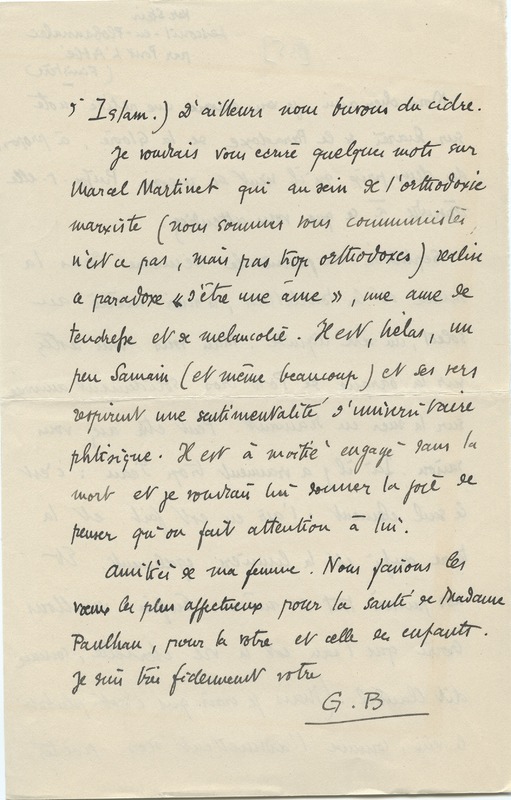 d'Islam.) D'ailleurs nous buvons du cidre.
Je voudrais vous écrire quelques mots sur
Marcel Martinet qui au sein de l'orthodoxie
marxiste (nous sommes tous communistes,
n'est ce pas, mais pas trop orthodoxes) réalise
ce paradoxe « d'être une âme », une ame de
tendresse et de mélancolie. Il est, hélas, un
peu Samain (et même beaucoup) et ses vers
respirent une sentimentalité d'universitaire
phtisique. Il est à moitié engagé dans la
mort et je voudrais lui donner la joie de
penser qu'on fait attention à lui.
Amitiés de ma femme. Nous faisons les
vœux les plus affectueux pour la santé de Madame
Paulhan, pour la votre et celle des enfants.
Je suis très fidèlement votre
G. B